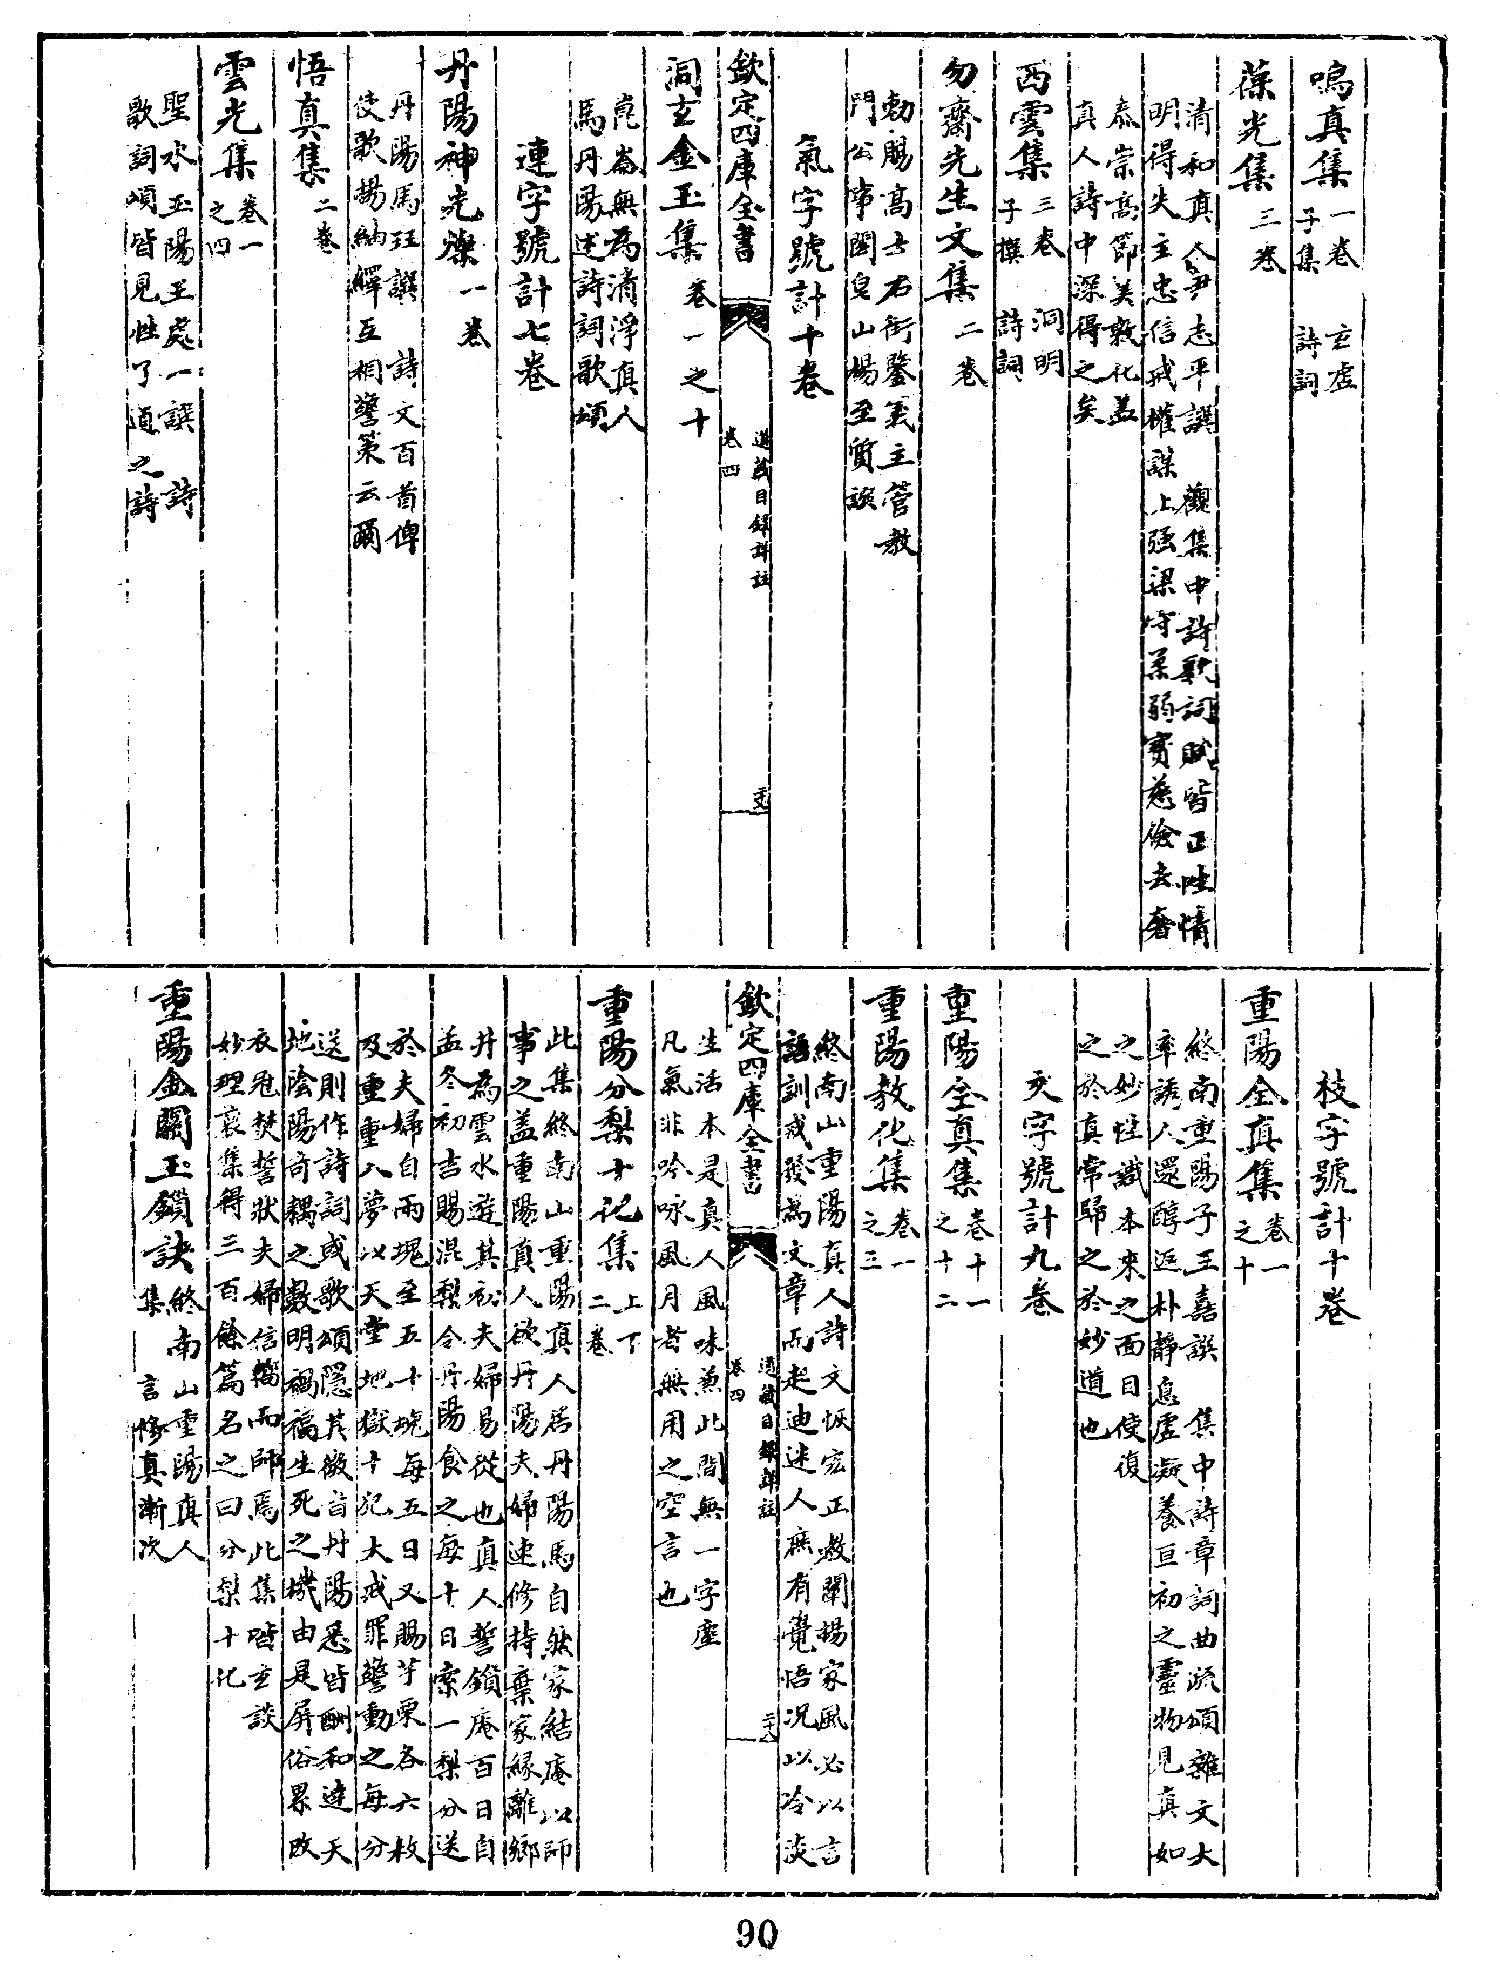 鳴真集一卷　玄虛
子集　詩詞
葆光集三卷
清和真人尹志平譔　觀集中詩歌詞賦皆正性情
明得失主忠信戒權謀上強梁守柔弱寶慈儉去奢
泰崇高節美教化蓋
真人詩中深得之矣
西雲集三卷　洞明
子撰　詩詞
勿齋先生文集二卷
勅賜高士右街鑒義主管教
門公事閤皂山楊至質談
氣字號計十卷
欽定四庫全書
道藏目録詳註
卷四
洞玄金玉集卷一之十
崑崙無為清淨真人
馬丹陽述詩詞歌頌
連字號計七卷
丹陽神光燦一卷
丹陽馬珏譔　詩文百首俾
使歌揚紬繹互相警策云爾
悟真集二卷
雲光集卷一
之四
聖水玉陽王處一譔　詩
歌詞頌皆見性了道之詩
枝字號計十卷
重陽全真集卷一
之十
終南重陽子王嚞譔　集中詩章詞曲疏頌雜文大
率誘人還醇返朴靜息虛凝養亘初之靈物見真如
之妙性識本來之面目使復
之於真常歸之於妙道也
交字號計九卷
重陽全真集卷十一
之十二
重陽教化集卷一
之三
終南山重陽真人詩文恢宏正教闡揚家風必以言
語訓戒發為文章而起迪迷人庶有覺悟况以冷淡
欽定四庫全書
道藏目録詳註
卷四
二十八
生活本是真人風味兼此間無一字塵
凡氣非吟咏風月者無用之空言也
重陽分梨十化集上下
二卷
此集終南山重陽真人居丹陽馬自然家結庵以師
事之蓋重陽真人欲丹陽夫婦速修持棄家緣離鄉
井為雲水遊其初夫婦易從也真人誓鎖庵百日自
孟冬初吉賜渾梨令丹陽食之每十日索一梨分送
於夫婦自兩塊至五十塊每五日又賜芋栗各六枚
及重重入夢以天堂地獄十犯大戒罪警動之每分
送則作詩詞或歌頌隱其微旨丹陽悉皆酬和達天
地陰陽奇耦之數明禍福生死之機由是屏俗累改
衣冠焚誓狀夫婦信嚮而師焉此集皆玄談
妙理裒集得三百餘篇名之曰分梨十化
重陽金關玉鎖訣終南山重陽真人
集　言修真漸次
90